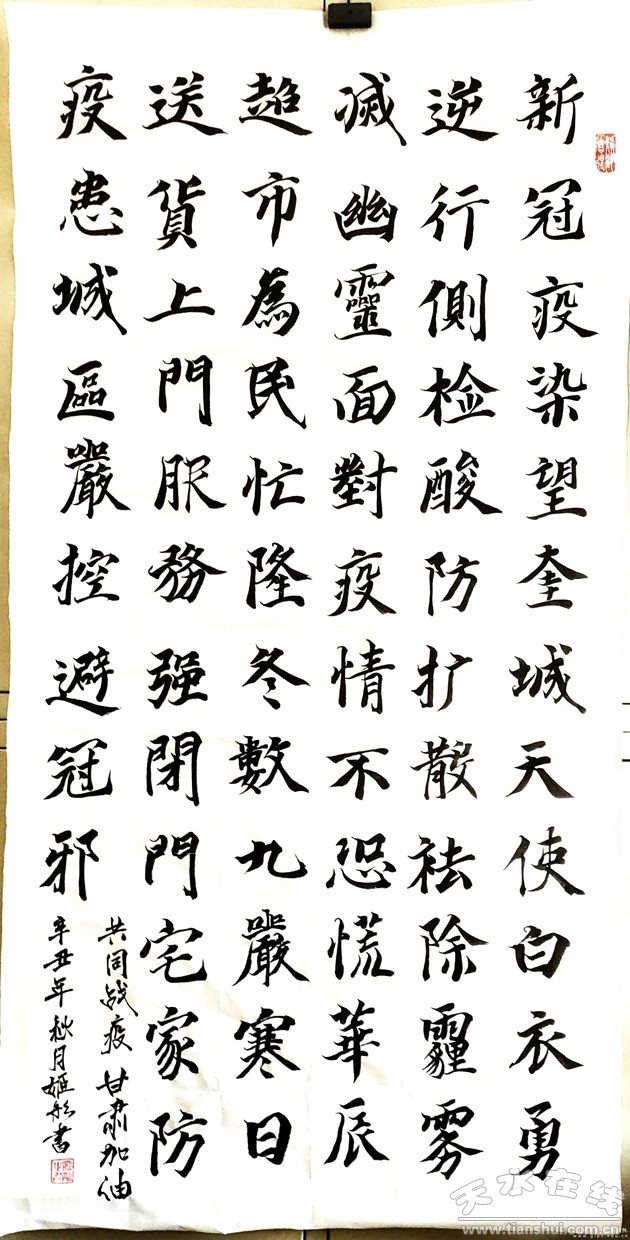 新冠疫染望奎城天使白衣勇
逆行側检酸防扩散祛除霾雾
滅幽靈面對疫情不恐慌華辰
超市為民忙隆冬數九嚴寒日
送貨上門服務强閉門宅家防
疫患城區嚴控避冠邪
共同战疫 甘肅加油
辛丑年秋月姬書
天水在线
www.tianshui.com.cn